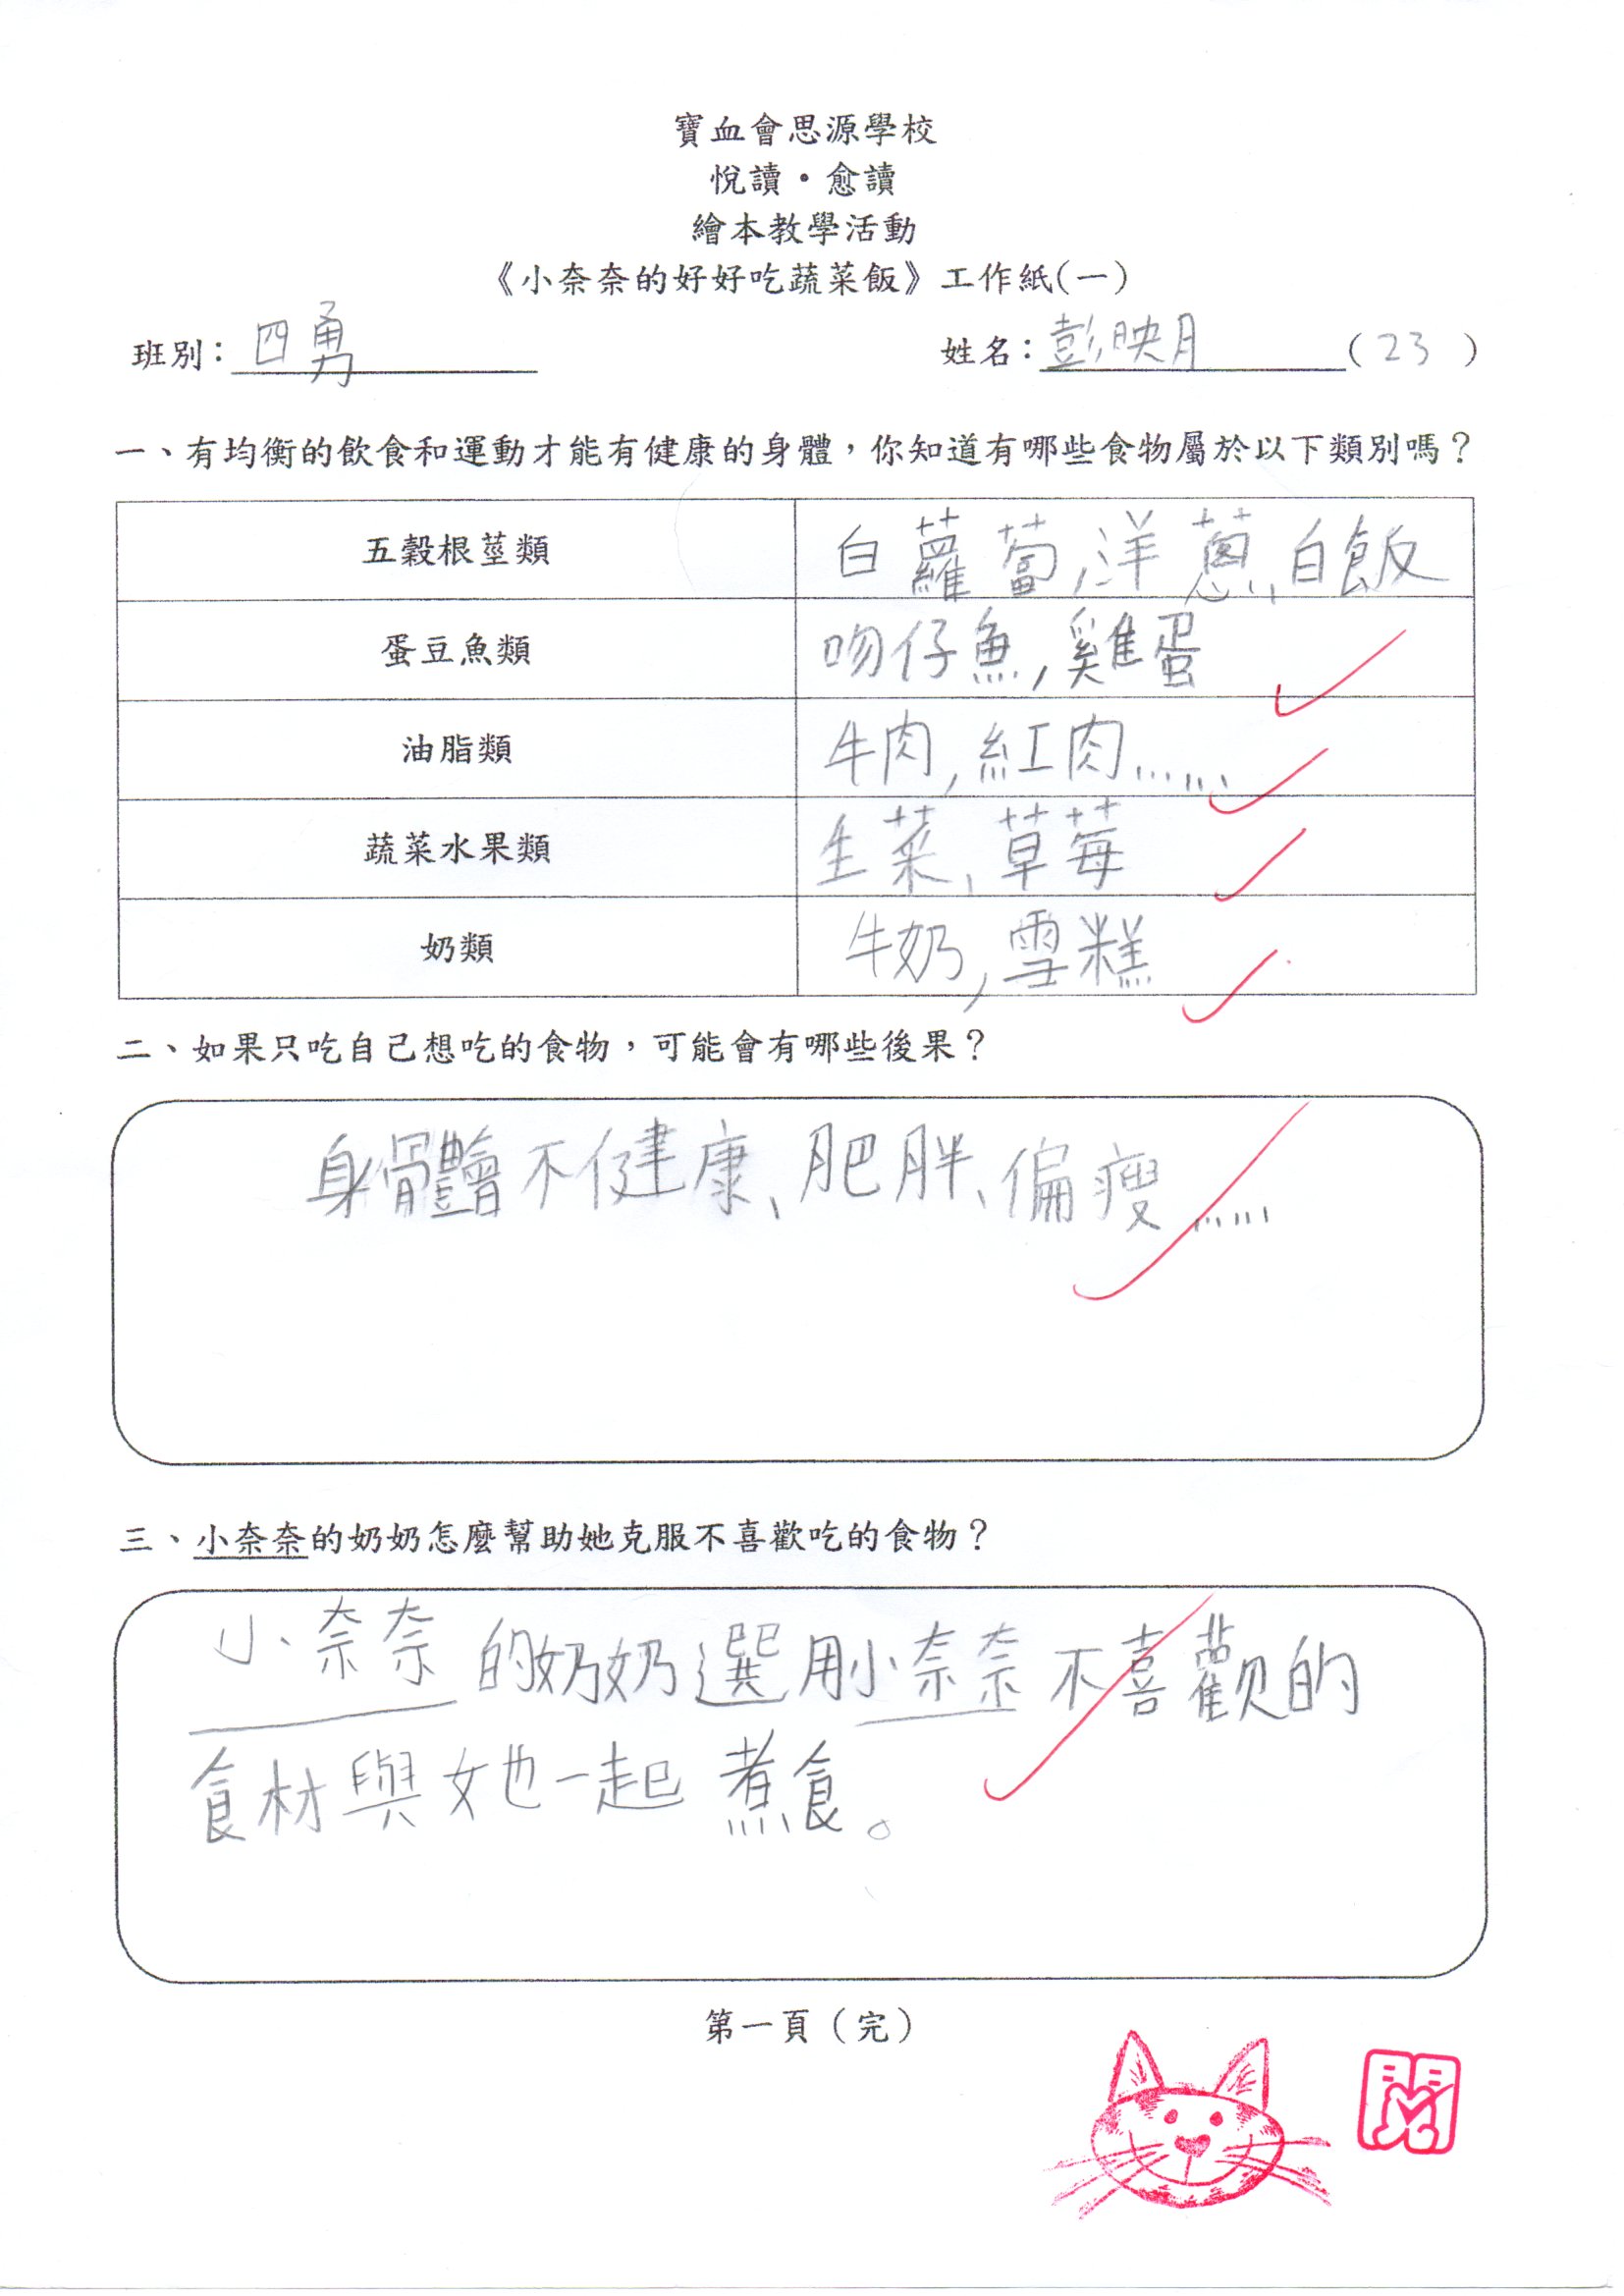 寶血會思源學校
悅讀•愈讀
繪本教學活動
《小奈奈的好好吃蔬菜飯》工作紙(一)
班別：四勇 姓名：彭映月(23)
一、有均衡的飲食和運動才能有健康的身體，你知道有哪些食物屬於以下類別嗎？
五穀根莖類 白蘿蔔,洋蔥、白飯
蛋豆魚類 吻仔魚,雞蛋
油脂類 牛肉,紅肉……
蔬菜水果類 生菜、草莓
奶類 牛奶,雪糕
二、如果只吃自己想吃的食物，可能會有哪些後果？
身體會不健康、肥胖、偏瘦……
三、小奈奈的奶奶怎麼幫助她克服不喜歡吃的食物？
小奈奈的奶奶選用小奈奈不喜歡的
食材與她一起煮食。
第一頁（完）
閱